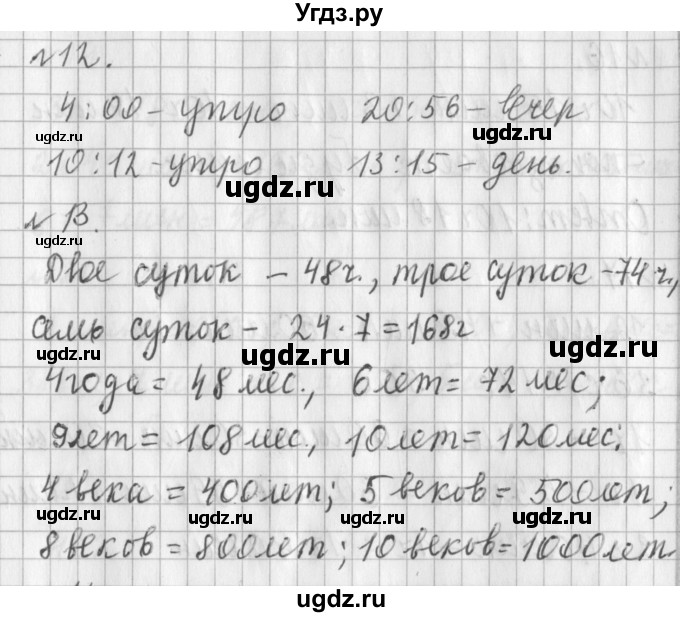 Угдз.ру
№12.
4:00-утро 20:56-вечер
ugdz.ru ugdz.ru
10:12-утро 13:15-день.
ugdz.ru
№13.
ugdz.ru
Двое суток - 48ч., трое суток -74ч.,
ugdz.ru
семь суток - 24·7=168ч
ugdz.ru ugdz.ru
4 года = 48 мес., 6 лет = 72 мес;
ugdz.ru
9 лет = 108 мес., 10 лет = 120 мес;
ugdz.ru
4 века = 400 лет; 5 веков = 500 лет;
ugdz.ru ugdz.ru ugdz.ru ugdz.ru
8 веков = 800 лет; 10 веков = 1000 лет.
ugdz.ru